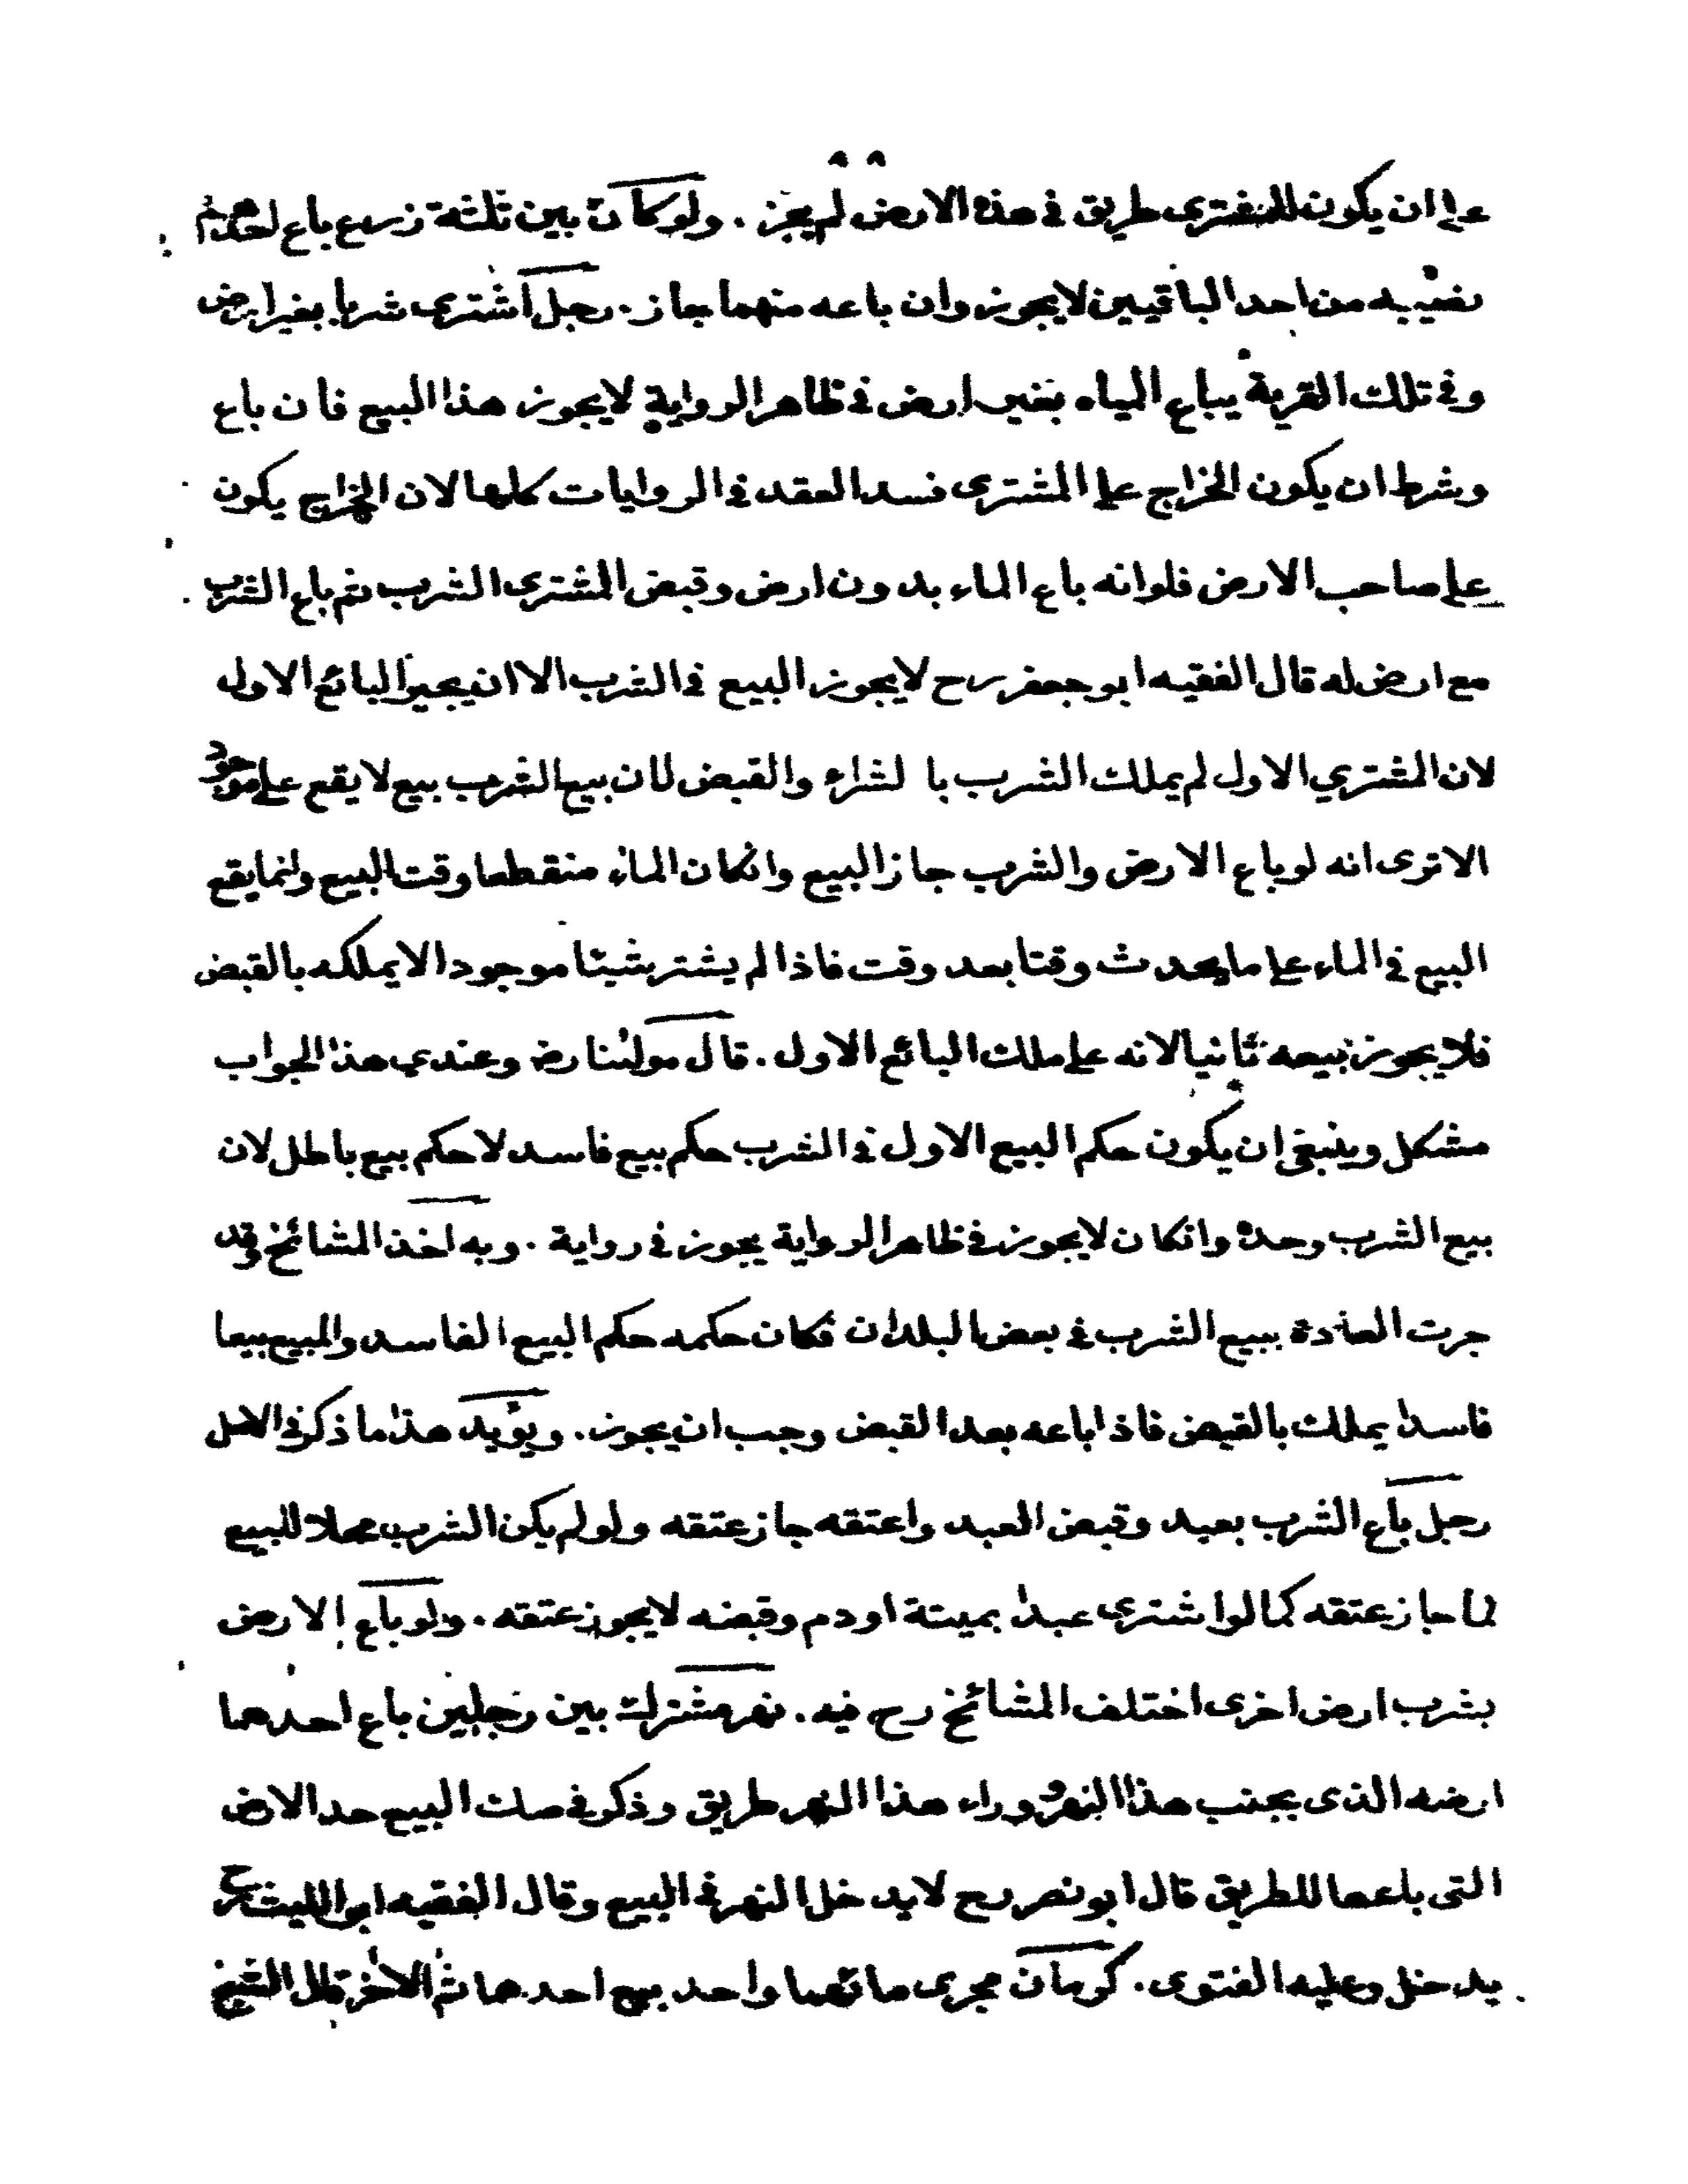 على ان يكون للمشترى طريق فى هذه الارض لم يجز . ولو كان بين ثلثة زرع باع احدهم
نصيبه من احد الباقيين لا يجوز وان باعه منهما جاز . رجل اشترى شربا بغير ارض
وفى تلك القرية يباع المياه بغير ارض فى ظاهر الرواية لا يجوز هذا البيع فان باع
وشرط ان يكون الخراج على المشترى فسد العقد فى الروايات كلها لان الخراج يكون
على صاحب الارض فلو انه باع الماء بدون ارض وقبض المشترى الشرب ثم باع الشرب
مع ارض له قال الفقيه ابو جعفر رح لا يجوز البيع فى الشرب الا ان يجيز البائع الاول
لان المشتري الاول لم يملك الشرب بالشراء والقبض لان بيع الشرب بيع لا يقع على موجود
الا ترى انه لو باع الارض والشرب جاز البيع وانكان الماء منقطعا وقت البيع وانما يقع
البيع فى الماء على ما يحدث وقتا بعد وقت فاذا لم يشتر شيئا موجودا لا يملكه بالقبض
فلا يجوز بيعه ثانيا لانه على ملك البائع الاول . قال مولٰنا رض وعندي هذا الجواب
مشكل وينبغى ان يكون حكم البيع الاول فى الشرب حكم بيع فاسد لا حكم بيع باطل لان
بيع الشرب وحده وانكان لا يجوز فى ظاهر الرواية يجوز فى رواية . وبه اخذ المشائخ وقد
جرت العادة ببيع الشرب فى بعض البلدان فكان حكمه حكم البيع الفاسد والمبيع بيعا
فاسدا يملك بالقبض فاذا باعه بعد القبض وجب ان يجوز . ويؤيد هذا ما ذكر فى الاصل
رجل باع الشرب بعبد وقبض العبد واعتقه جاز عتقه ولو لم يكن الشرب محلا للبيع
لما جاز عتقه كما لو اشترى عبدا بميتة او دم وقبضه لا يجوز عتقه . ولو باع الارض
بشرب ارض اخرى اختلف المشائخ رح فيه . نهر مشترك بين رجلين باع احدهما
ارضه الذى بجنب هذا النهر ووراء هذا النهر طريق وذكر فى صك البيع حد الارض
التى باعها للطريق قال ابو نصر رح لا يدخل النهر فى البيع وقال الفقيه ابو الليث رح
يدخل وعليه الفتوى . كرمان مجرى مائهما واحد بيع احدهما ثم الاخر قال الشيخ